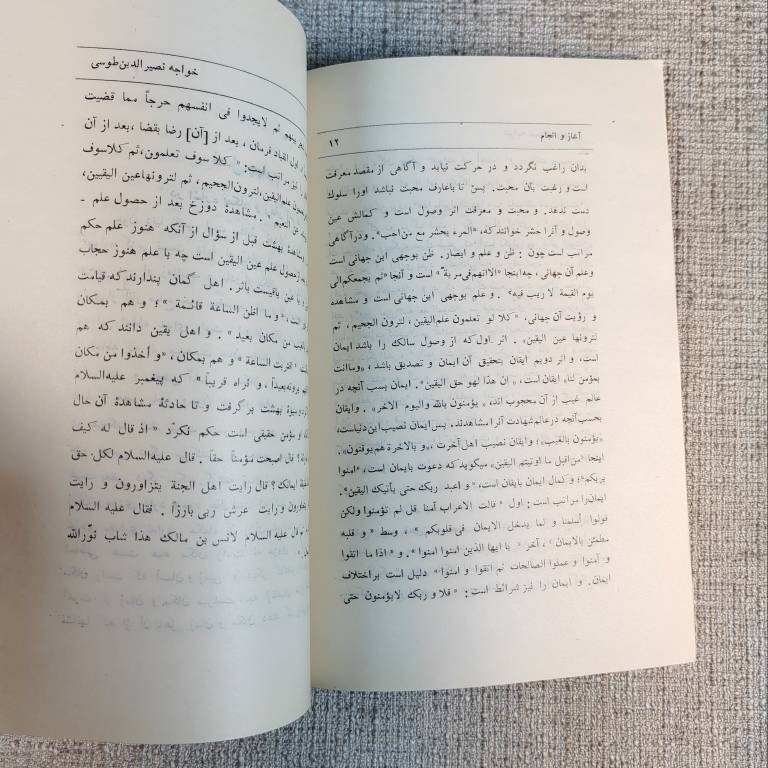 آغاز و انجام
۱۲
بدان راغب نگردد و در حرکت نیاید و آگاهی از مقصد معرفت
است و رغبت بآن محبت. پس تا باعارف محبت نباشد اورا سلوك
دست ندهد. و محبت و معرفت اثر وصول است و کمالش عین
وصول و آنرا حشر خوانند که، «المرء یحشر مع من احب». و در آگاهی
مراتب است چون: ظن و علم و ابصار. ظن بوجهی این جهانی است
و علم آن جهانی، چه اینجا «الا انهم فی مریة» است و آنجا «ثم یجمعکم الی
یوم القیمة لا ریب فیه». و علم بوجهی این جهانی است و مشاهده
و رؤیت آن جهانی، «کلا لو تعلمون علم الیقین، لترون الجحیم، ثم
لترونها عین الیقین». اثر اول که از وصول سالك را باشد ایمان
است، و اثر دویم ایقان بتحقیق آن ایمان و تصدیق باشد، «وما انت
بمؤمن لنا» ایقان است، «ان هذا لهو حق الیقین». ایمان بسبب آنچه در
عالم غیب از آن محجوب اند، «یؤمنون بالله والیوم الاخر». وایقان
بحسب آنچه در عالم شهادت آنرا مشاهدند. پس ایمان نصیب این دنیاست،
«یؤمنون بالغیب»؛ و ایقان نصیب اهل آخرت، «و بالاخرة هم یوقنون».
اینجا «من اقبل ما اوتیتم الیقین» میگوید که دعوت بایمان است، «امنوا
بربکم»؛ و کمال ایمان بایقان است، « و اعبد ربك حتی یأتیك الیقین».
ایمان را مراتب است: اول « قالت الاعراب آمنا قل لم تؤمنوا ولکن
قولوا أسلمنا و لما یدخل الایمان فی قلوبکم » ، وسط « و قلبه
مطمئن بالایمان » ، آخر « یا ایها الذین امنوا امنوا ». و « اذا ما اتقوا
و آمنوا و عملوا الصالحات ثم اتقوا و امنوا » دلیل است بر اختلاف
ایمان. و ایمان را نیز شرائط است : « فلا و ربك لایؤمنون حتی
خواجه نصیرالدین طوسی
بینهم ثم لایجدوا فی انفسهم حرجاً مما قضیت
اول انقیاد فرمان ، بعد از [آن] رضا بقضا ، بعد از آن
نیز مراتب است : « کلا سوف تعلمون، ثم کلاسوف
علم الیقین، لترون الجحیم، ثم لترونهاعین الیقین،
عن النعیم » . مشاهدۀ دوزخ بعد از حصول علم ـ
مشاهدۀ بهشت قبل از سؤال از آنکه هنوز علم حکم
حصول علم عین الیقین است چه با علم هنوز حجاب
و با عین باقیست با اثر . اهل گمان پندارند که قیامت
« و ما اظن الساعة قائمة » ؛ و هم بمکان
بالغیب من مکان بعید » . و اهل یقین دانند که هم
« اقتربت الساعة » و هم بمکان ، « و أخذوا من مکان
یرونه بعیداً ، و نراه قریباً » که پیغمبر علیه‌السلام
میوۀ بهشت بر گرفت و تا حادثۀ مشاهدۀ آن حال
و مؤمن حقیقی است حکم نکرد « اذ قال له کیف
؟ قال اصبحت مؤمناً حقاً . قال علیه‌السلام لکل حق
ایمانك؟ قال رایت اهل الجنة یتزاورون و رایت
و رایت عرش ربی بارزاً . فقال علیه السلام
قال علیه السلام لانس بن مالك هذا شاب نوّرالله